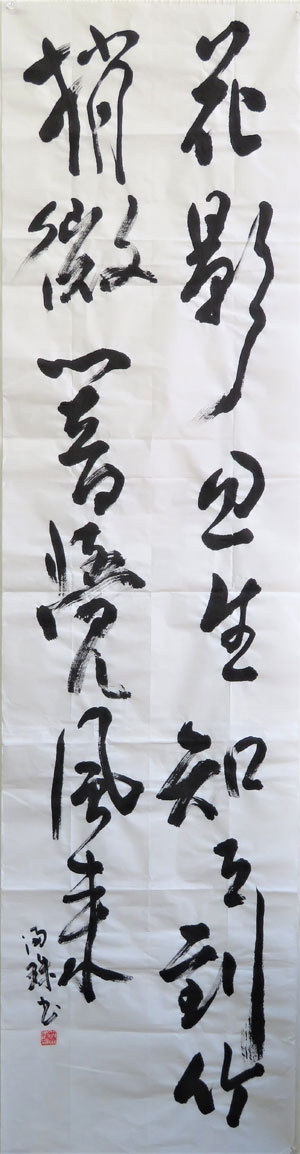 花影忽生知月到竹
梢微響覺風來
書